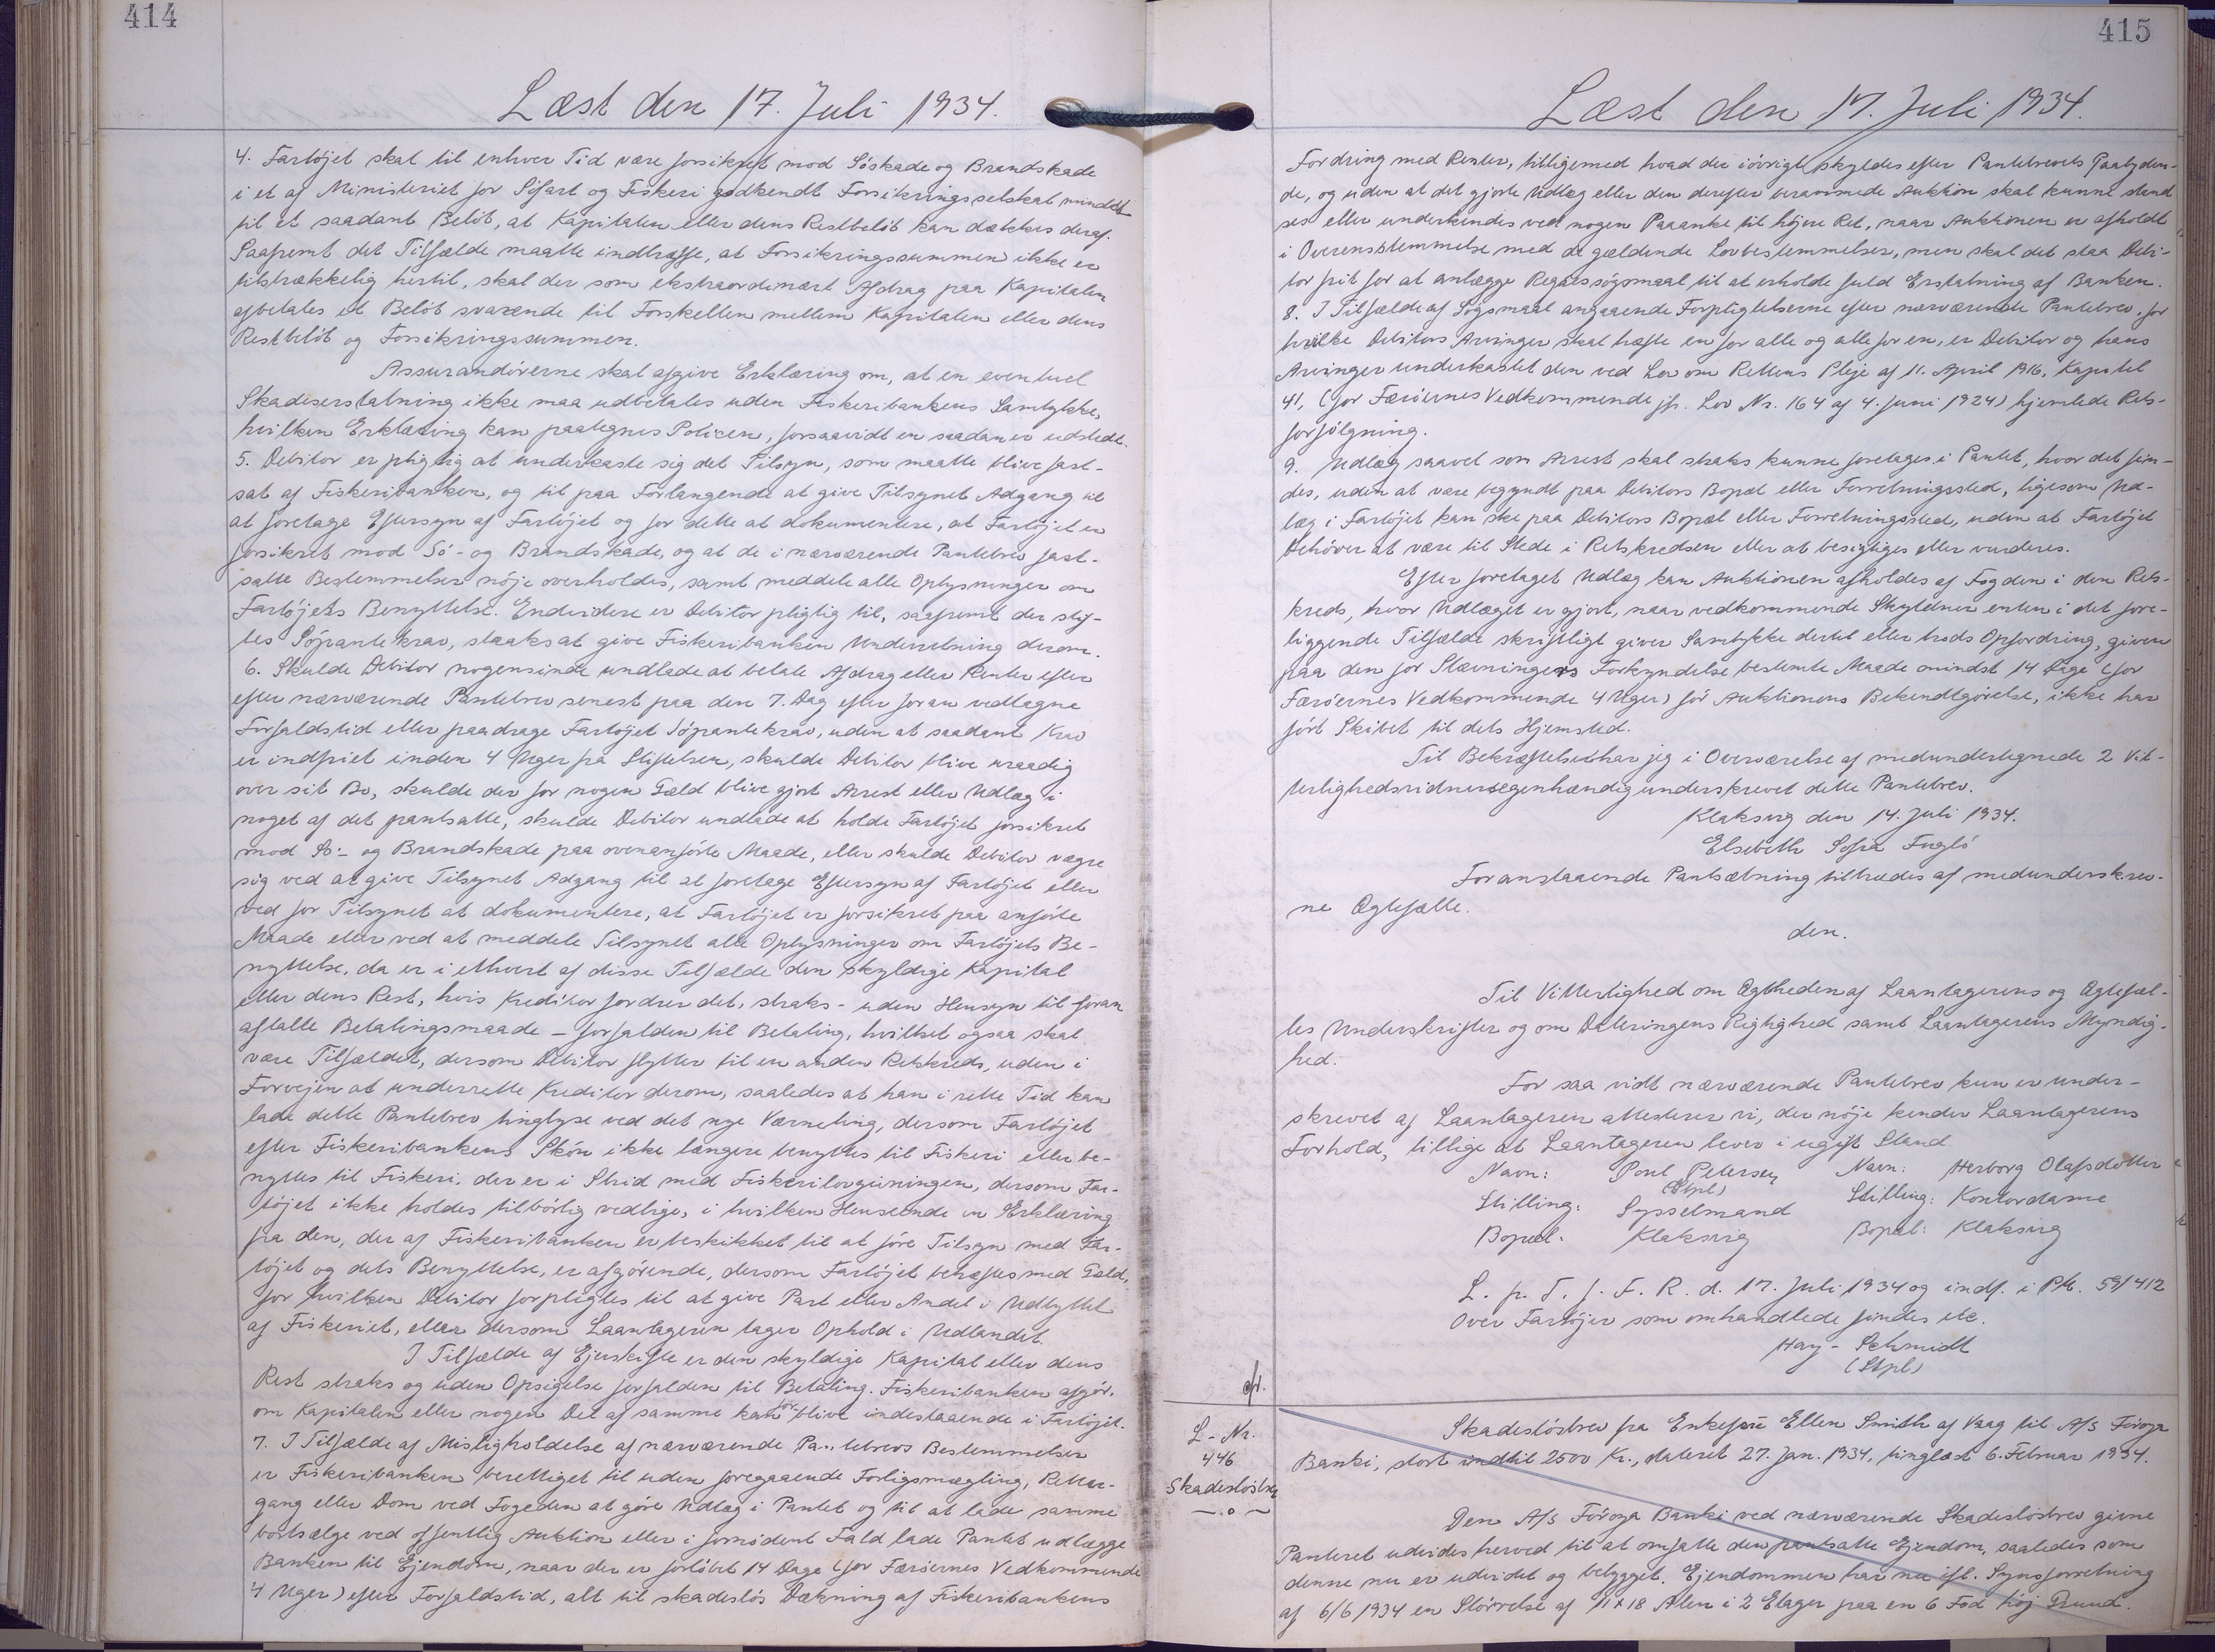 414
Læst den 17. Juli 1934.
4. Fartøjet skal til enhver Tid være forsikret mod Søskade og Brandskade
i et af Ministeriet for Søfart og Fiskeri godkendt Forsikringsselskab mindst
til et saadant Beløb, at Kapitalen eller dens Restbeløb kan dækkes deraf.
Saafremt det Tilfælde maatte indtræffe, at Forsikringssummen ikke er
tilstrækkelig hertil, skal der som ekstraordinært Afdrag paa Kapitalen
afbetales et Beløb svarende til Forskellen mellem Kapitalen eller dens
Restbeløb og Forsikringssummen.
Assurandørerne skal afgive Erklæring om, at en eventuel
Skadeserstatning ikke maa udbetales uden Fiskeribankens Samtykke,
hvilken Erklæring kan paategnes Policen, forsaavidt en saadan er udstedt.
5. Debitor er pligtig at underkaste sig det Tilsyn, som maatte blive fast-
sat af Fiskeribanken, og til paa Forlangende at give Tilsynet Adgang til
at foretage Eftersyn af Fartøjet og for dette at dokumentere, at Fartøjet er
forsikret mod Sø- og Brandskade, og at de i nærværende Pantebrev fast-
satte Bestemmelser nøje overholdes, samt meddele alle Oplysninger om
Fartøjets Benyttelse. Endvidere er Debitor pligtig til, saafremt der stif-
tes Søpantekrav, straks at give Fiskeribanken Underretning derom.
6. Skulde Debitor nogensinde undlade at betale Afdrag eller Renter efter
efter nærværende Pantebrev senest paa den 7. Dag efter foran vedtagne
Forfaldstid eller paadrage Fartøjet Søpantekrav, uden at saadant Krav
er indfriet inden 4 Uger fra Stiftelsen, skulde Debitor blive uraadig
over sit Bo, skulde der for nogen Gæld blive gjort Arrest eller Udlæg i
noget af det pantsatte, skulde Debitor undlade at holde Fartøjet forsikret
mod Sø- og Brandskade paa ovenanførte Maade, eller skulde Debitor vægre
sig ved at give Tilsynet Adgang til at foretage Eftersyn af Fartøjet eller
ved for Tilsynet at dokumentere, at Fartøjet er forsikret paa anførte
Maade eller ved at meddele Tilsynet alle Oplysninger om Fartøjets Be-
nyttelse, da er i ethvert af disse Tilfælde den skyldige Kapital
eller dens Rest, hvis Kreditor fordrer det, straks - uden Hensyn til foran
aftalte Betalingsmaade - forfalden til Betaling, hvilket ogsaa skal
være Tilfældet, dersom Debitor flytter til en anden Retskreds, uden i
Forvejen at underrette Kreditor derom, saaledes at han i rette Tid kan
lade dette Pantebrev tinglyse ved det nye Værneting, dersom Fartøjet
efter Fiskeribankens Skøn ikke længere benyttes til Fiskeri eller be-
nyttes til Fiskeri, der er i Strid med Fiskerilovgivningen, dersom Far-
tøjet ikke holdes tilbørlig vedlige, i hvilken Henseende en Erklæring
fra den, der af Fiskeribanken er beskikket til at føre Tilsyn med Far-
tøjet og dets Benyttelse, er afgørende, dersom Fartøjet behæftes med Gæld,
for hvilken Debitor forpligtes til at give Part eller Andel i Udbyttet
af Fiskeriet, eller dersom Laantageren tager Ophold i Udlandet.
I Tilfælde af Ejerskifte er den skyldige Kapital eller dens
Rest straks og uden Opsigelse forfalden til Betaling. Fiskeribanken afgør,
om Kapitalen eller nogen Del af samme kan for blive indestaaende i Fartøjet.
7. I Tilfælde af Misligholdelse af nærværende Pantebrevs Bestemmelser
er Fiskeribanken berettiget til uden foregaaende Forligsmægling, Retter-
gang eller Dom ved Fogeden at gøre Udlæg i Pantet og til at lade samme
bortsælge ved offentlig Auktion eller i fornødent Fald lade Pantet udlægge
Banken til Ejendom, naar der er forløbet 14 Dage (for Færøernes Vedkommende
4 Uger) efter Forfaldstid, alt til skadesløs Dækning af Fiskeribankens
415
Læst den 17. Juli 1934.
Fordring med Renter, tilligemed hvad der iøvrigt skyldes efter Pantebrevets Paalyden-
de, og uden at det gjorte Udlæg eller den derefter berammede Auktion skal kunne stand
ses eller underkendes ved nogen Paaanke til højere Ret, naar Auktionen er afholdt
i Overensstemmelse med de gældende Lovbestemmelser, men skal det staa Debi-
tor frit for at anlægge Regressøgsmaal til at erholde fuld Erstatning af Banken.
8. I Tilfælde af Søgsmaal angaaende Forpligtelserne efter nærværende Pantebrev, for
hvilke Debitors Arvinger skal hæfte en for alle og alle for en, er Debitor og hans
Arvinger underkastet den ved Lov om Rettens Pleje af 11. April 1916, Kapitel
41, (for Færøernes Vedkommende jfr. Lov Nr. 164 af 4. Juni 1924) hjemlede Rets-
forfølgning.
9. Udlæg saavel som Arrest skal straks kunne foretages i Pantet, hvor det fin-
des, uden at være begyndt paa Debitors Bopæl eller Forretningssted, ligesom Ud-
læg i Fartøjet kan ske paa Debitors Bopæl eller Forretningssted, uden at Fartøjet
behøver at være til Stede i Retskredsen eller at besigtiges eller vurderes.
Efter foretaget Udlæg kan Auktionen afholdes af Fogden i den Rets-
kreds, hvor Udlæget er gjort, naar vedkommende Skyldner enten i det fore-
liggende Tilfælde skriftligt giver Samtykke dertil eller trods Opfordring, given
paa den for Stævningers Forkyndelse bestemte Maade mindst 14 Dage (for
Færøernes Vedkommende 4 Uger) før Auktionens Bekendtgørelse, ikke har
ført Skibet til dets Hjemsted.
Til Bekræftelse har jeg i Overværelse af medundertegnede 2 Vit-
terlighedsvidner egenhændig underskrevet dette Pantebrev.
Klaksvig den 14. Juli 1934.
Elsebeth Sofia Fuglø
Foranstaaende Pantsætning tiltrædes af medunderskrev-
ne Ægtefælle.
den.
Til Vitterlighed om Ægtheden af Laantagerens og Ægtefæl-
les Underskrifter og om Dateringens Rigtighed samt Laantagerens Myndig-
hed.
For saa vidt nærværende Pantebrev kun er under-
skrevet af Laantageren attesterer vi, der nøje kender Laantagerens
Forhold, tillige at Laantageren lever i ugift Stand
Navn: Poul Petersen Navn: Herborg Olafsdotter
(Stpl)
Stilling: Sysselmand Stilling: Kontordame
Bopæl: Klaksvig Bopæl: Klaksvig
L. p. T. f. F. R. d. 17. Juli 1934 og indf. i Pb. 59/412
Over Fartøjer som omhandlede findes etc.
Hay-Schmidt
(Stpl)
L-Nr.
446
Skadesløsbrev
Skadesløsbrev fra Enkefru Ellen Smith af Vaag til A/S Føroya
Banki, stort indtil 2500 Kr., dateret 27. Jan. 1934, tinglæst 6. Februar 1934.
Den A/S Føroya Banki ved nærværende Skadesløsbrev givne
Panteret udvides herved til at omfatte den pantsatte Ejendom, saaledes som
denne nu er udvidet og bebygget. Ejendommen har nu ifl. Synsforretning
af 6/6 1934 en Størrelse af 11 x 18 Alen i 2 Etager paa en 6 Fod høj Grund.